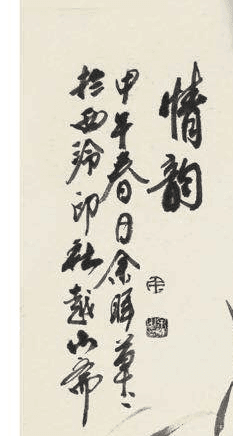 情韵
甲午春日余晖草草
于西泠印社越山斋